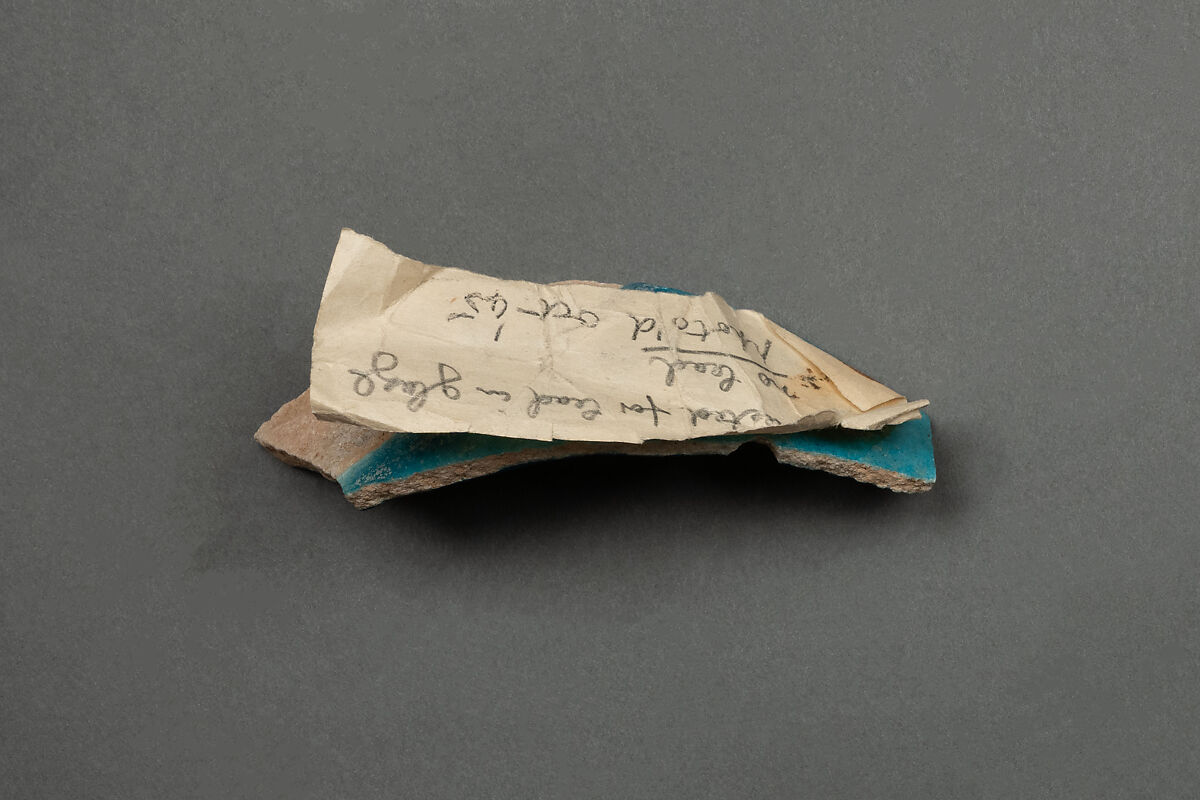 tested for lead in glaze
no lead
Photo'd Oct '45